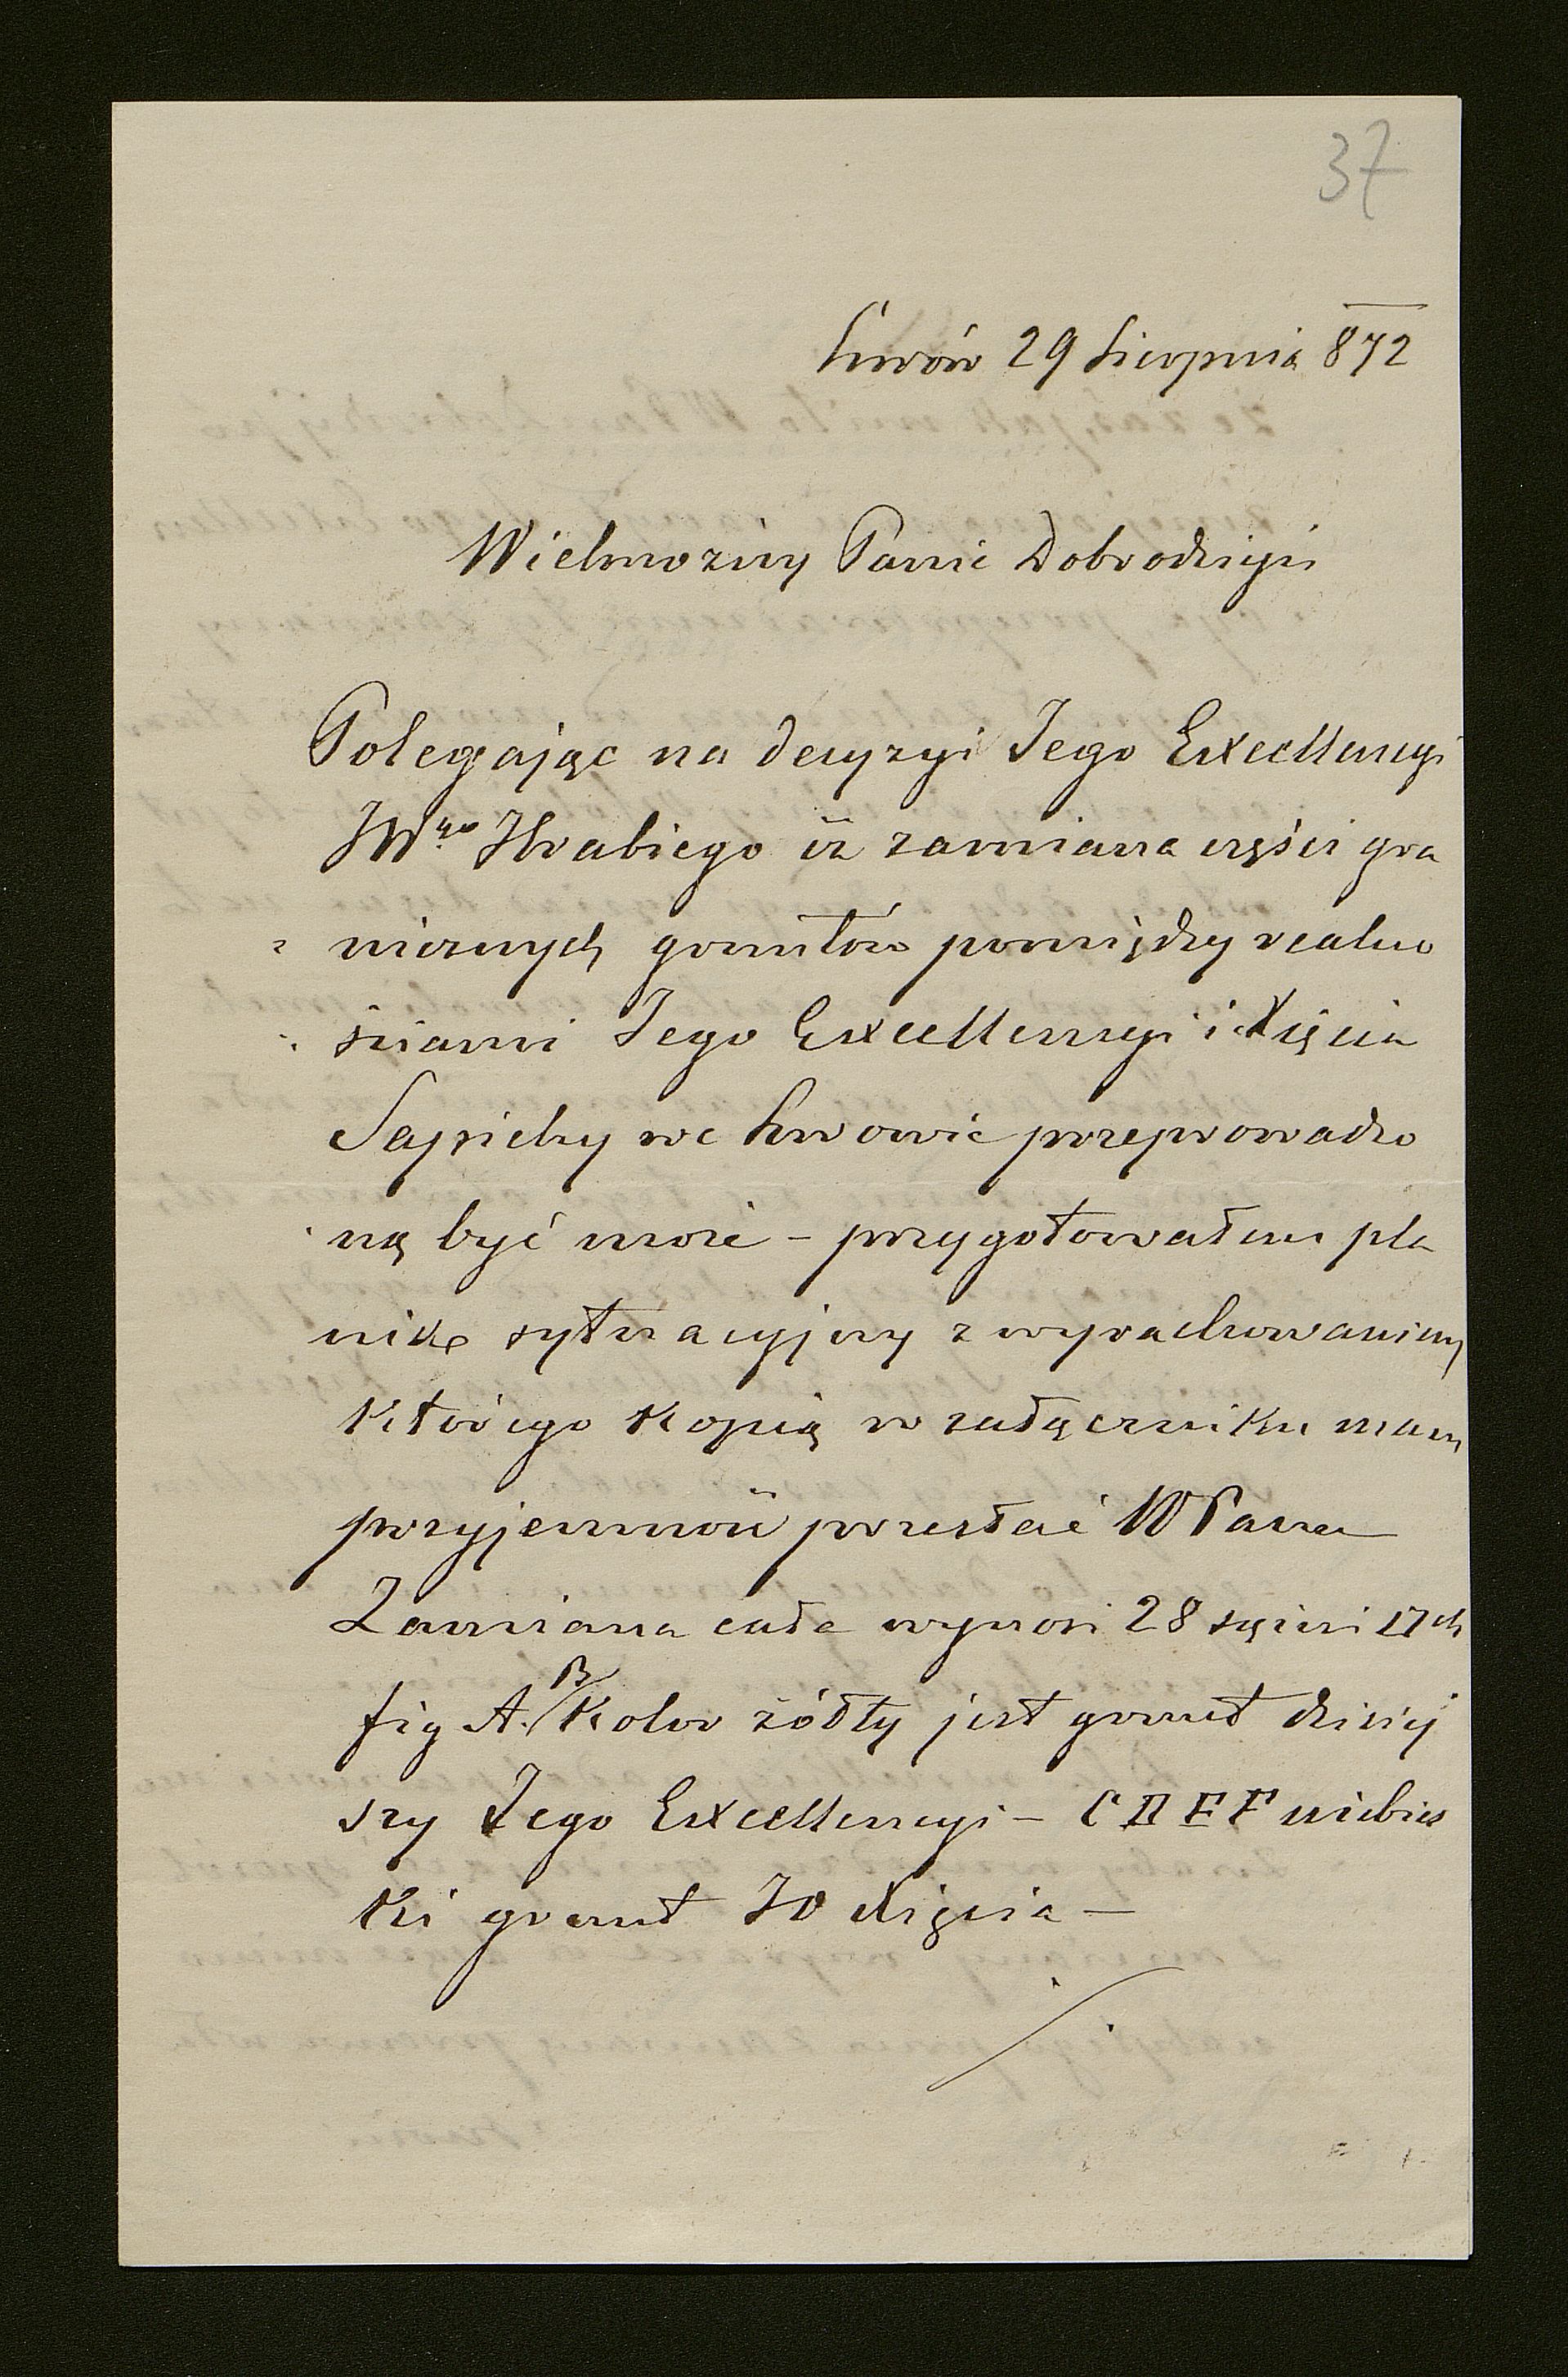 37
Lwów 29 Sierpnia 872
Wielmożny Panie Dobrodzieju
Polegając na decyzyi Jego Exxcellencyi
JWgo Hrabiego iż zamiana części gra
nicznych gruntów pomiędzy realno
ściami Jego Exxcellencyi i Xięcia
Sapiehy we Lwowie przeprowadzo
ną być może – przygotowałem pla
nik sytuacyjny z wyrachowaniem
którego kopią w załączniku mam
przyjemność przesłać WPanu
Zamiana cała wynosi 28 sążni □ch
fig A. B/ Kolor żółty jest grunt dzisiej
szy Jego Exxcellencyi – C D E F niebies
ki grunt JO Xięcia –